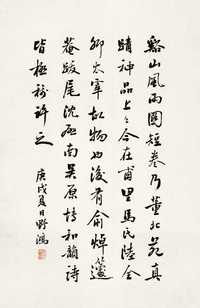 谿山風雨圖短卷乃董北苑真
蹟神品上上今在甫里馬氏陸全
卿太宰故物也後有俞焯蘧
菴跋尾沈石南吴原博和韻詩
皆極稱許之
庚戌夏日野鴻